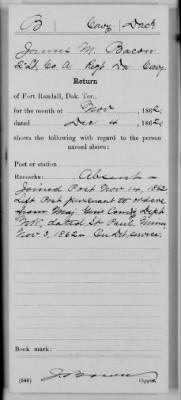 B Cavy Dak
M. Bacon
2 Lt., Co. A Regt Da Cavy
Return
of Fort Randall, Dak. Ter.,
for the month of Nov , 1862
dated Dec 4 , 1862
shows the following with regard to the person
named above:
Post or station
Remarks: Absent —
Joined Post Nov 14, 1862
Left Post pursuant to orders
from Maj. Genl Comdg Dept
NW, dated St Paul, Minn
Nov 3, 1862 — On Det. service.
Book mark:
(546) Copyist.